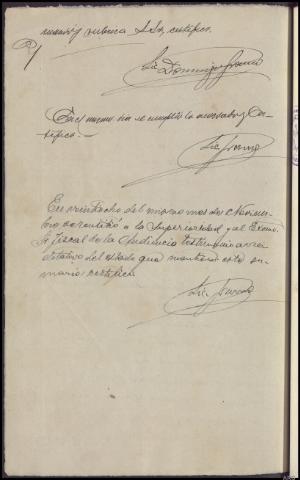 mando y rubrica S.S. certifico.
Lic Domingo
En el mismo dia se cumplio lo acordado y Cer-
tifico.—
Lic
En veintiocho del mismo mes de Noviem-
bre se remitió a la Superioridad y al Excmo
Sr Fiscal de la Audiencia testimonio acre-
ditativo del estado que mantiene este su-
mario: certifico
Lic